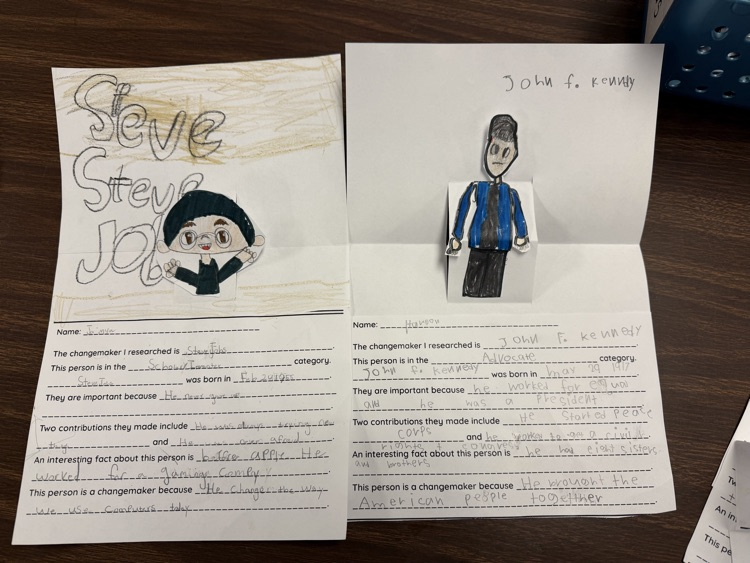 Steve
Steve
Job
Name:
The changemaker I researched is Steve Jobs
This person is in the category.
was born in Feb
They are important because He never gave up
Two contributions they made include He was always trying new
and He was never afraid
An interesting fact about this person is before apple. Her
worked for a gaming Compy
This person is a changemaker because He change the way
we use computers today
John f. kenndy
Name:
The changemaker I researched is John F. kennedy
This person is in the Advocate category.
John f. kennedy was born in may 29 1917
They are important because he worked for
and he was a President
Two contributions they made include He started peace
corps and he worked to a civil
rights
An interesting fact about this person is he had eight sisters
and brothers
This person is a changemaker because He brought the
American people together
Tw
An in
This pe